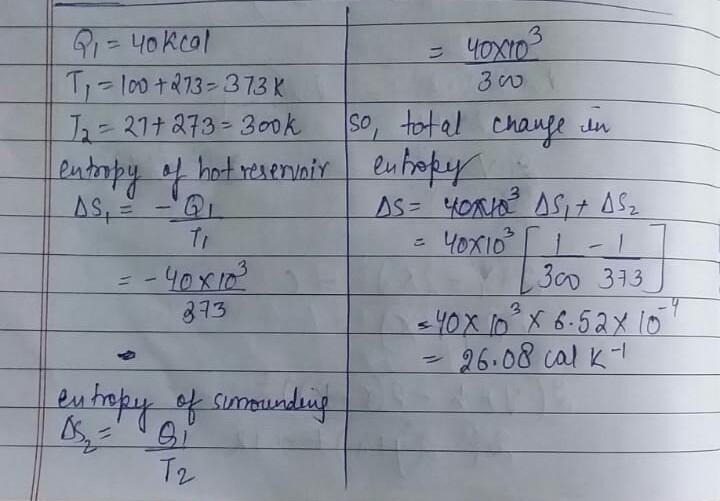 Q₁ = 40 Kcal
T₁ = 100 + 273 = 373 K
T₂ = 27 + 273 = 300 K
entropy of hot reservoir
ΔS₁ = - Q₁/T₁
= - 40×10³/273
entropy of surrounding
ΔS₂ = Q₁/T₂
= 40×10³/300
so, total change in
entropy
ΔS = ΔS₁ + ΔS₂
= 40×10³ [1/300 - 1/373]
= 40 × 10³ × 6.52 × 10⁻⁴
= 26.08 cal K⁻¹